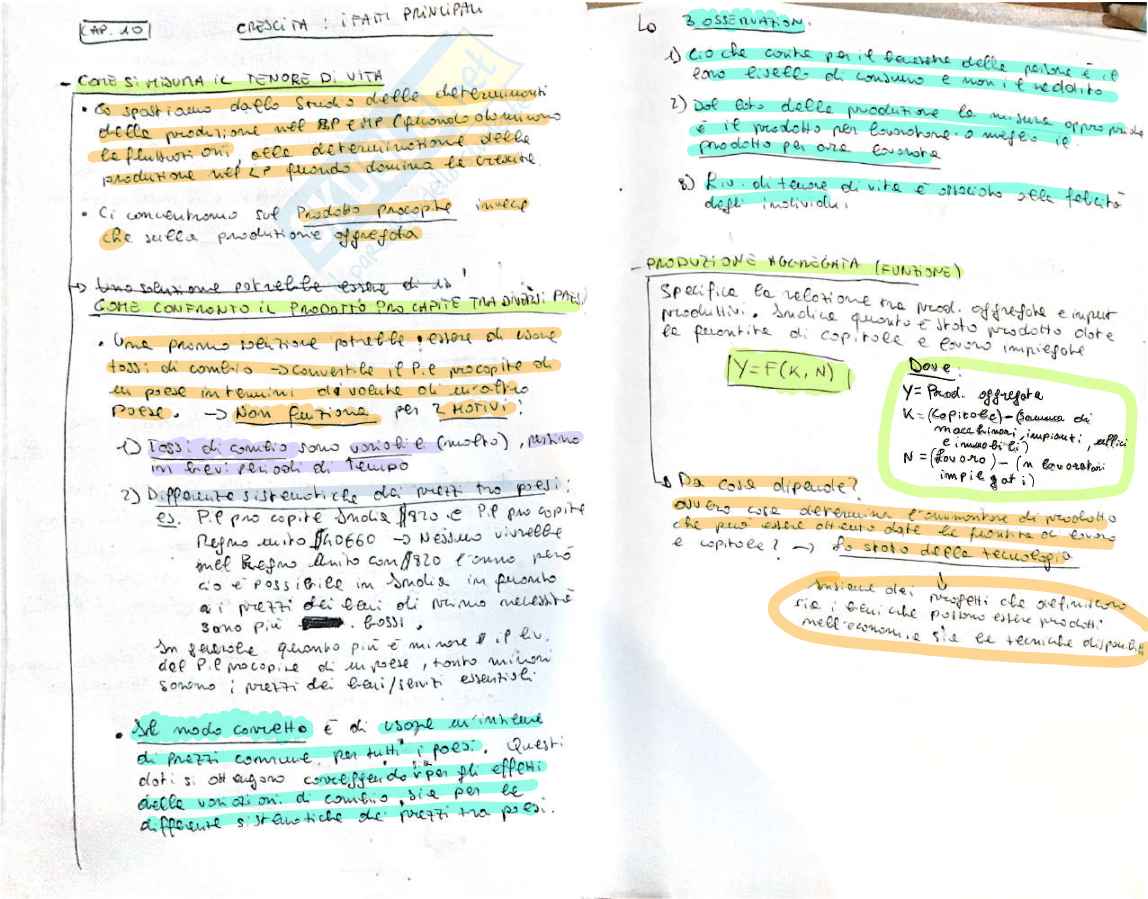 CAP. 10
CRESCITA : I FATTI PRINCIPALI
- COME SI MISURA IL TENORE DI VITA
• Ci spostiamo dallo studio delle determinanti
della produzione nel BP e MP (quando dominano
le fluttuazioni, alla determinazione della
produzione nel LP quando domina la crescita.
• Ci concentriamo sul Prodotto procapite invece
che sulla produzione aggregata
→ Una soluzione potrebbe essere di us
COME CONFRONTO IL PRODOTTO PRO CAPITE TRA DIVERSI PAESI
• Una prima soluzione potrebbe essere di usare
tassi di cambio → convertire il P.il procapite di
un paese in termini di valute di un altro
paese. → Non funziona per 2 MOTIVI:
1) Tassi di cambio sono variabili (molto), persino
in brevi periodi di Tempo
2) Differenze sistematiche dei prezzi tra paesi:
es. P.il pro capite India $820 e P.il pro capite
Regno unito $40660 → Nessuno vivrebbe
nel Regno Unito con $820 l'anno però
ciò è possibile in India in quanto
i prezzi dei beni di prima necessità
sono più bassi.
In generale quanto più è minore il liv.
del P.il procapite di un paese, tanto minori
saranno i prezzi dei beni/servizi essenziali
• Il modo corretto è di usare un'insieme
di prezzi comune per tutti i paesi. Questi
dati si ottengono correggendo sia per gli effetti
delle variazioni di cambio, sia per le
differenze sistematiche dei prezzi tra paesi.
↳ 3 OSSERVAZION.
1) Ciò che conta per il benessere delle persone è il
loro livello di consumo e non il reddito
2) Dal lato della produzione la misura appropriata
è il prodotto per lavoratore o meglio il
prodotto per ora lavorata
3) Il liv. di tenore di vita è associato alla felicità
degli individui
- PRODUZIONE AGGREGATA (FUNZIONE)
Specifica la relazione tra prod. aggregata e input
produttivi. Indica quanto è stato prodotto date
le quantità di capitale e lavoro impiegate
Y=F(K,N)
Dove:
Y= Prod. aggregata
K=(Capitale)-(Somma di
macchinari, impianti, uffici
e immobili)
N=(Lavoro)-(n lavoratori
impiegati)
Da cosa dipende?
ovvero cosa determina l'ammontare di prodotto
che può essere ottenuto date le quantità di lavoro
e capitale? → Lo stato della tecnologia
↓
Insieme dei progetti che definiscono
sia i beni che possono essere prodotti
nell'economia sia le tecniche disponibili